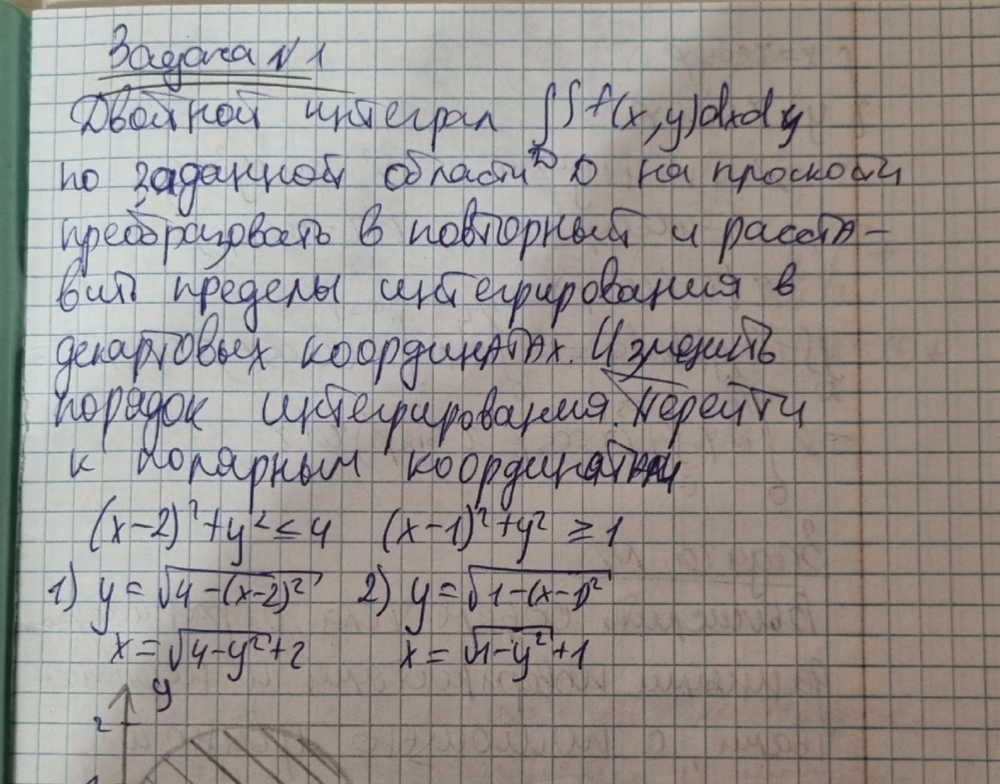 Задача №1
Двойной интеграл ∫∫f(x,y)dxdy
D
по заданной области D на проскости
преобразовать в повторный и расста-
вить пределы интегрирования в
декартовых координатах. Изменить
порядок интегрирования. Перейти
к полярным координатам
(x-2)²+y²≤4 (x-1)²+y²≥1
1) y=√4-(x-2)² 2) y=√1-(x-1)²
x=√4-y²+2 x=√1-y²+1
y
2